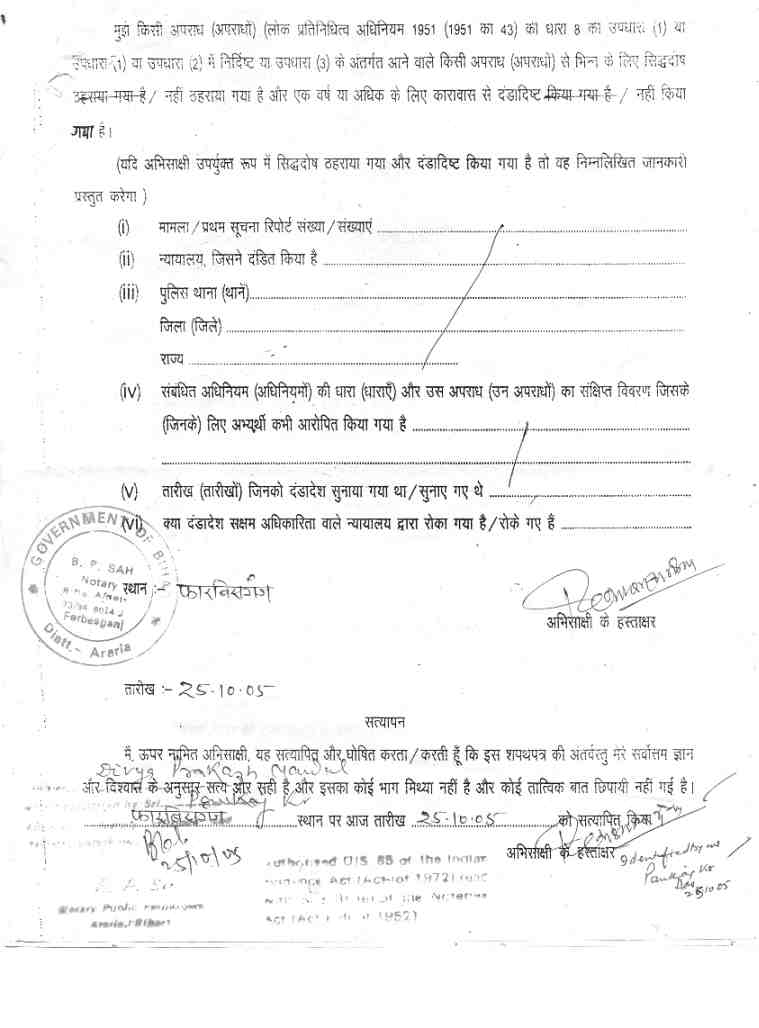 मुझे किसी अपराध (अपराधों) (लोक प्रतिनिधित्व अधिनियम 1951 (1951 का 43) की धारा 8 का उपधारा (1) या
उपधारा (1) या उपधारा (2) में निर्दिष्ट या उपधारा (3) के अंतर्गत आने वाले किसी अपराध (अपराधों) से भिन्न के लिए सिद्धदोष
ठहराया गया है / नहीं ठहराया गया है और एक वर्ष या अधिक के लिए कारावास से दंडादिष्ट किया गया है / नहीं किया
गया है।
(यदि अभिसाक्षी उपर्युक्त रूप में सिद्धदोष ठहराया गया और दंडादिष्ट किया गया है तो वह निम्नलिखित जानकारी
प्रस्तुत करेगा )
(i) मामला / प्रथम सूचना रिपोर्ट संख्या / संख्याएं
(ii) न्यायालय, जिसने दंडित किया है
(iii) पुलिस थाना (थानें)
जिला (जिले)
राज्य
(iv) संबंधित अधिनियम (अधिनियमों) की धारा (धाराएँ) और उस अपराध (उन अपराधों) का संक्षिप्त विवरण जिसके
(जिनके) लिए अभ्यर्थी कभी आरोपित किया गया है
(v) तारीख (तारीखों) जिनको दंडादेश सुनाया गया था / सुनाए गए थे
(vi) क्या दंडादेश सक्षम अधिकारिता वाले न्यायालय द्वारा रोका गया है / रोके गए हैं
GOVERNMENT OF BIHAR
B. P. SAH
Notary
Forbesganj
Distt.- Araria
स्थान :- फारबिसगंज
अभिसाक्षी के हस्ताक्षर
तारीख :- 25.10.05
सत्यापन
मैं, ऊपर नामित अभिसाक्षी, यह सत्यापित और घोषित करता / करती हूँ कि इस शपथपत्र की अंतर्वस्तु मेरे सर्वोत्तम ज्ञान
Divya Prakash Mandal
और विश्वास के अनुसार सत्य और सही है और इसका कोई भाग मिथ्या नहीं है और कोई तात्विक बात छिपायी नहीं गई है।
Pankaj Kr
फारबिसगंज स्थान पर आज तारीख 25.10.05 को सत्यापित किया
अभिसाक्षी के हस्ताक्षर
Identified by me
Pankaj Kr
Das
25.10.05
25/10/05
Authorised U/S 85 of the Indian
Act (Act of 1972)
of the Notaries
Act (Act of 1952)
Notary Public
Araria, (Bihar)